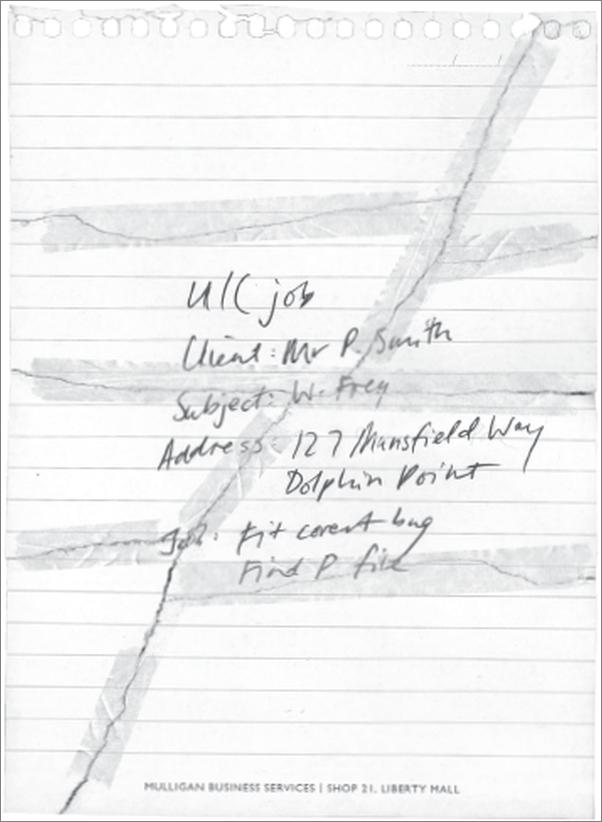 U/C job
Client: Mr P. Smith
Subject: W. Frey
Address: 127 Mansfield Way
Dolphin Point
Job: Fit covert bug
Find P file
MULLIGAN BUSINESS SERVICES | SHOP 21, LIBERTY MALL